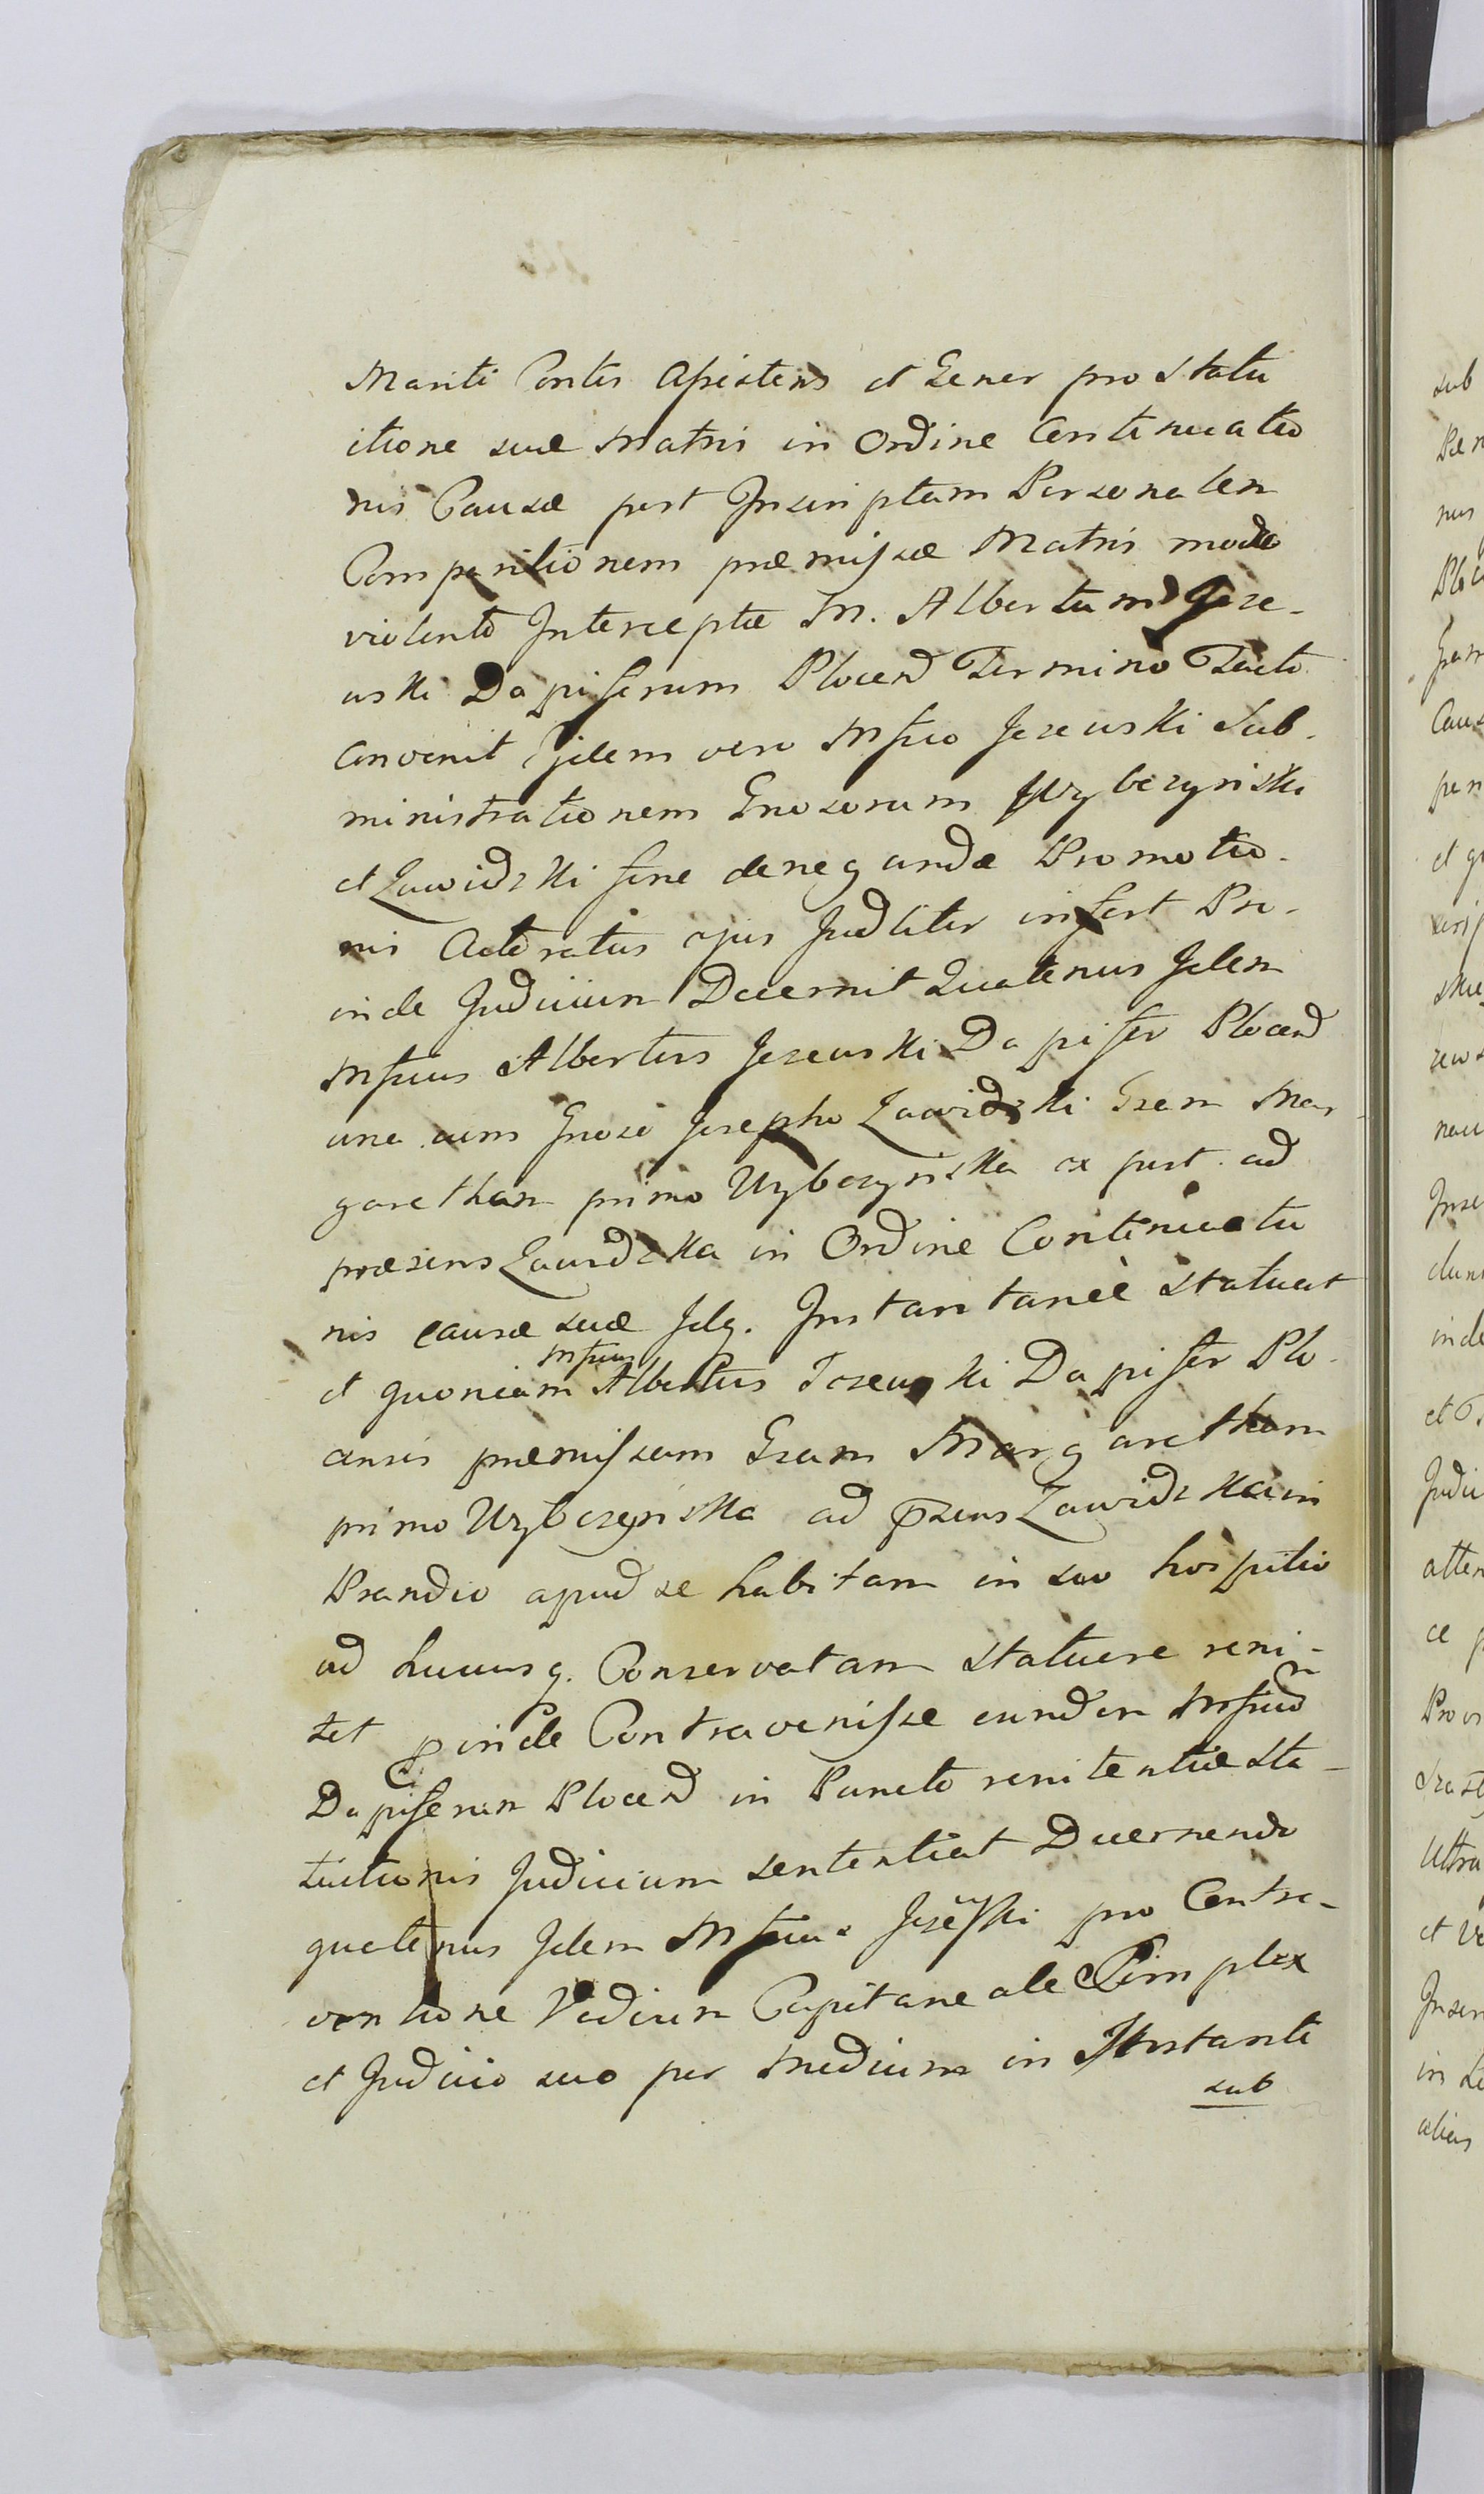 Mariti Contes Assistens et Gener pro Statu
itione suæ Matris in Ordine Continuatio
nis Causæ post Inscriptam Personalem
Comparitionem præmissæ Matris modo
violento Interceptæ M. Albertum Jeze-
uski Dapiferum Plocen Termino Tacto
Convenit Ejdem vero Mfico Jezeuski Sub-
ministrationem Gnosorum Wybczyński
et Zawidzki sine denegandæ Promotio-
nis Actoratus ejus Judliter infert Pro-
inde Judicium Decernit Quatenus Idem
Mficus Albertus Jezeuski Dapifer Plocen
una cum Gnoso Josepho Zawidzki Gsam Mar-
garetham primo Wybczyńska ex post ad
præsens Zawidzka in Ordine Continuatio
nis causæ suæ Idq. Instantanèe statuat
et quoniam Mficus Albertus Jezeuski Dapifer Plo-
censis præmissam Gsam Margaretham
primo Wybczyńska ad psens Zawidzka in
Prandio apud se habitam in suo hospitio
ad hucusq. Conservatam statuere reni-
tet proinde Contravenisse eundem Mficum
Dapiferum Plocen in Puncto renitentiæ Sta-
tuitionis Judicium sententiat Decernendo
quatenus Idem Mficus Jezewski pro Contra-
ventione Vadium Capitaneale Simplex
et Judicio suo per Medium in Instanti
sub
sub
et
inde
Judi
et
Ultra
et
in
alias